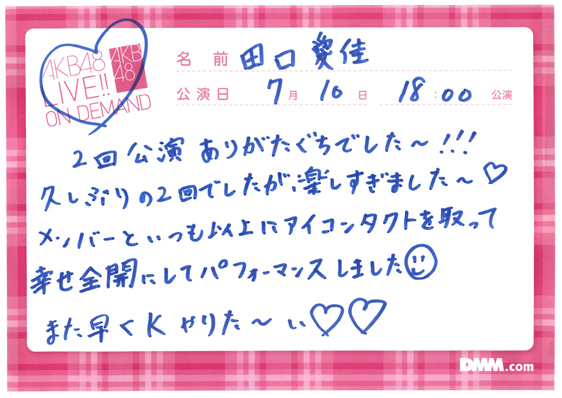 AKB48
LIVE!!
ON DEMAND
AKB
48
名前 田口愛佳
公演日 7月10日 18:00 公演
2回公演 ありがたぐちでした〜!!!
久しぶりの2回でしたが、楽しすぎました〜♡
メンバーといつも以上にアイコンタクトを取って
幸せ全開にしてパフォーマンスしました☺
また早くKやりた〜い♡♡
DMM.com